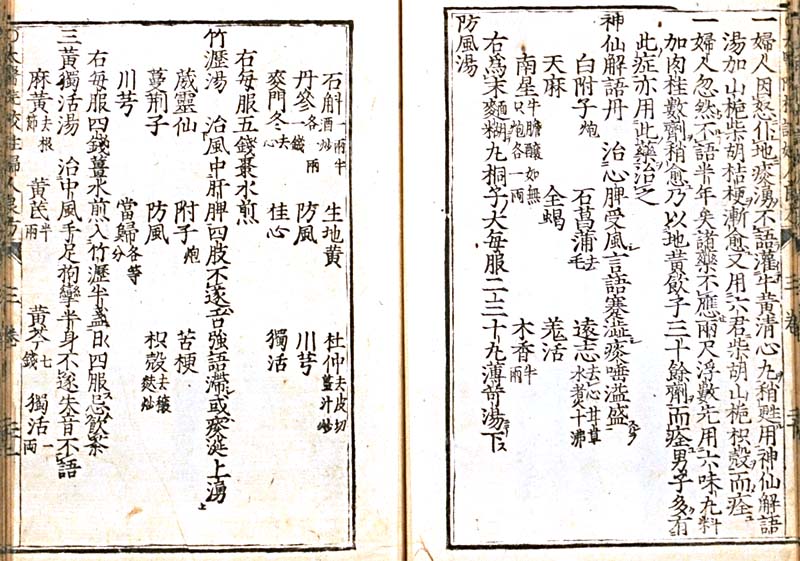 一婦人因怒仆地痰湧不語灌牛黃清心丸稍甦用神仙解語
湯加山梔柴胡桔梗漸愈又用六君柴胡山梔枳殼而痊
一婦人忽然不語半年矣諸藥不應兩尺浮數先用六味丸料
加肉桂數劑稍愈乃以地黃飲子三十餘劑而痊男子多有
此症亦用此藥治之
神仙解語丹 治心脾受風言語蹇澁痰唾溢盛
白附子炮 石菖蒲去毛 遠志去心甘草水煑十沸
天麻 全蝎 羗活
南星牛膽釀如無只炮各一兩 木香半兩
右爲末麵糊丸桐子大每服二三十丸薄荷湯下
防風湯
石斛一兩半酒炒 生地黃 杜仲去皮切薑汁炒
丹參各一兩一錢 防風 川芎
麥門冬去心 桂心 獨活
右每服五錢棗水煎
竹瀝湯 治風中肝脾四肢不遂舌強語滯或痰涎上湧
葳靈仙 附子炮 苦梗
蔓荊子 防風 枳殼去穰麩炒
川芎 當歸各等分
右每服四錢薑水煎入竹瀝半盞日四服忌飲茶
三黃獨活湯 治中風手足拘攣半身不遂失音不語
麻黃去根節 黃芪半兩 黃芩七錢 獨活一兩